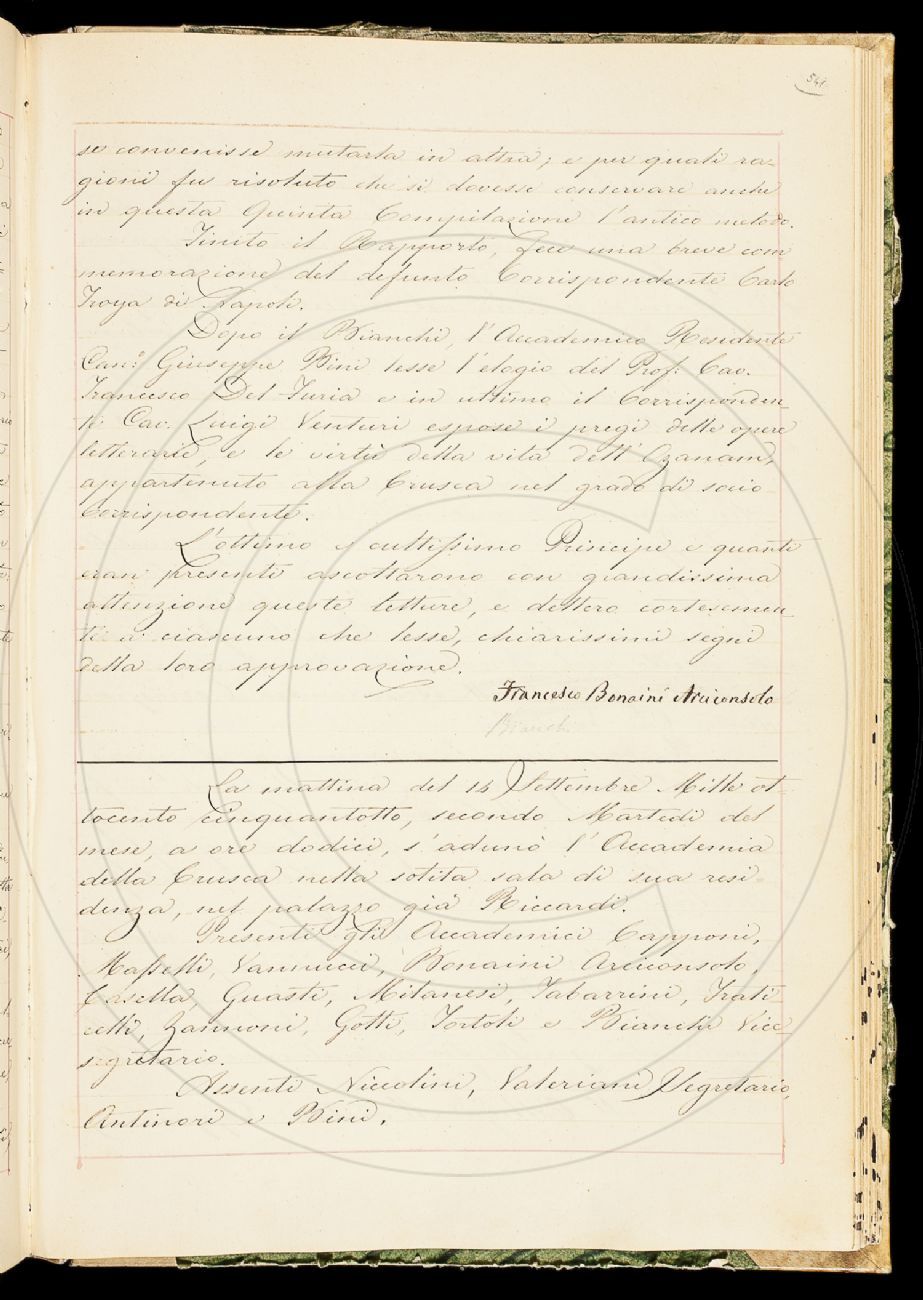 541
se convenisse mutarla in altra; e per quali ra-
gioni fu risoluto che si dovesse conservare anche
in questa Quinta Compilazione l'antico metodo.
Finito il Rapporto, fece una breve com
memorazione del defunto Corrispondente Carlo
Troya di Napoli.
Dopo il Bianchi, l'Accademico Residente
Can.º Giuseppe Bini lesse l'elogio del Prof: Cav.
Francesco Del-Furia e in ultimo il Corrisponden-
te Cav. Luigi Venturi espose i pregi delle opere
letterarie, e le virtù della vita dell'Ozanam,
appartenuto alla Crusca nel grado di socio
corrispondente.
L'ottimo e cultissimo Principe e quanti
eran presenti ascoltarono con grandissima
attenzione queste letture, e dettero cortesemen-
te a ciascuno che lesse, chiarissimi segni
della loro approvazione.
Francesco Bonaini Arciconsolo
Bianchi
La mattina del 14 Settembre Mille ot-
tocento cinquantotto, secondo Martedì del
mese, a ore dodici, s'adunò l'Accademia
della Crusca nella solita sala di sua resi-
denza, nel palazzo già Riccardi.
Presenti gli Accademici Capponi,
Masselli, Vannucci, Bonaini Arciconsolo,
Casella, Guasti, Milanesi, Tabarrini, Frati-
celli, Zannoni, Gotti, Tortoli e Bianchi Vice
segretario.
Assenti Niccolini, Valeriani Segretario,
Antinori e Bini.